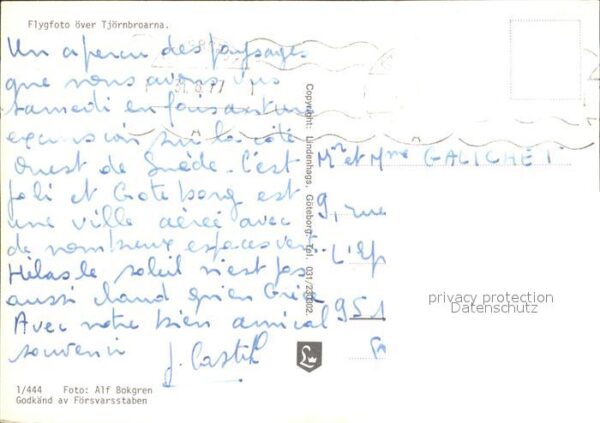 Flygfoto över Tjörnbroarna.
Un apercu des paysages
que nous avons vus
samedi en faisant une
excursion sur la côte
Ouest de Suède. C'est
joli et Goteborg est
une ville aérée avec
de nombreux espaces vert
Hélas le soleil n'est pas
aussi chaud qu'en Grèce
Avec notre bien amical
souvenir
J. Castil
Copyright: Lindenhags, Göteborg, Tel. 031/
Mr et Mme GALICHET
9, rue
L'Ep
951
privacy protection
Datenschutz
1/444 Foto: Alf Bokgren
Godkänd av Försvarsstaben